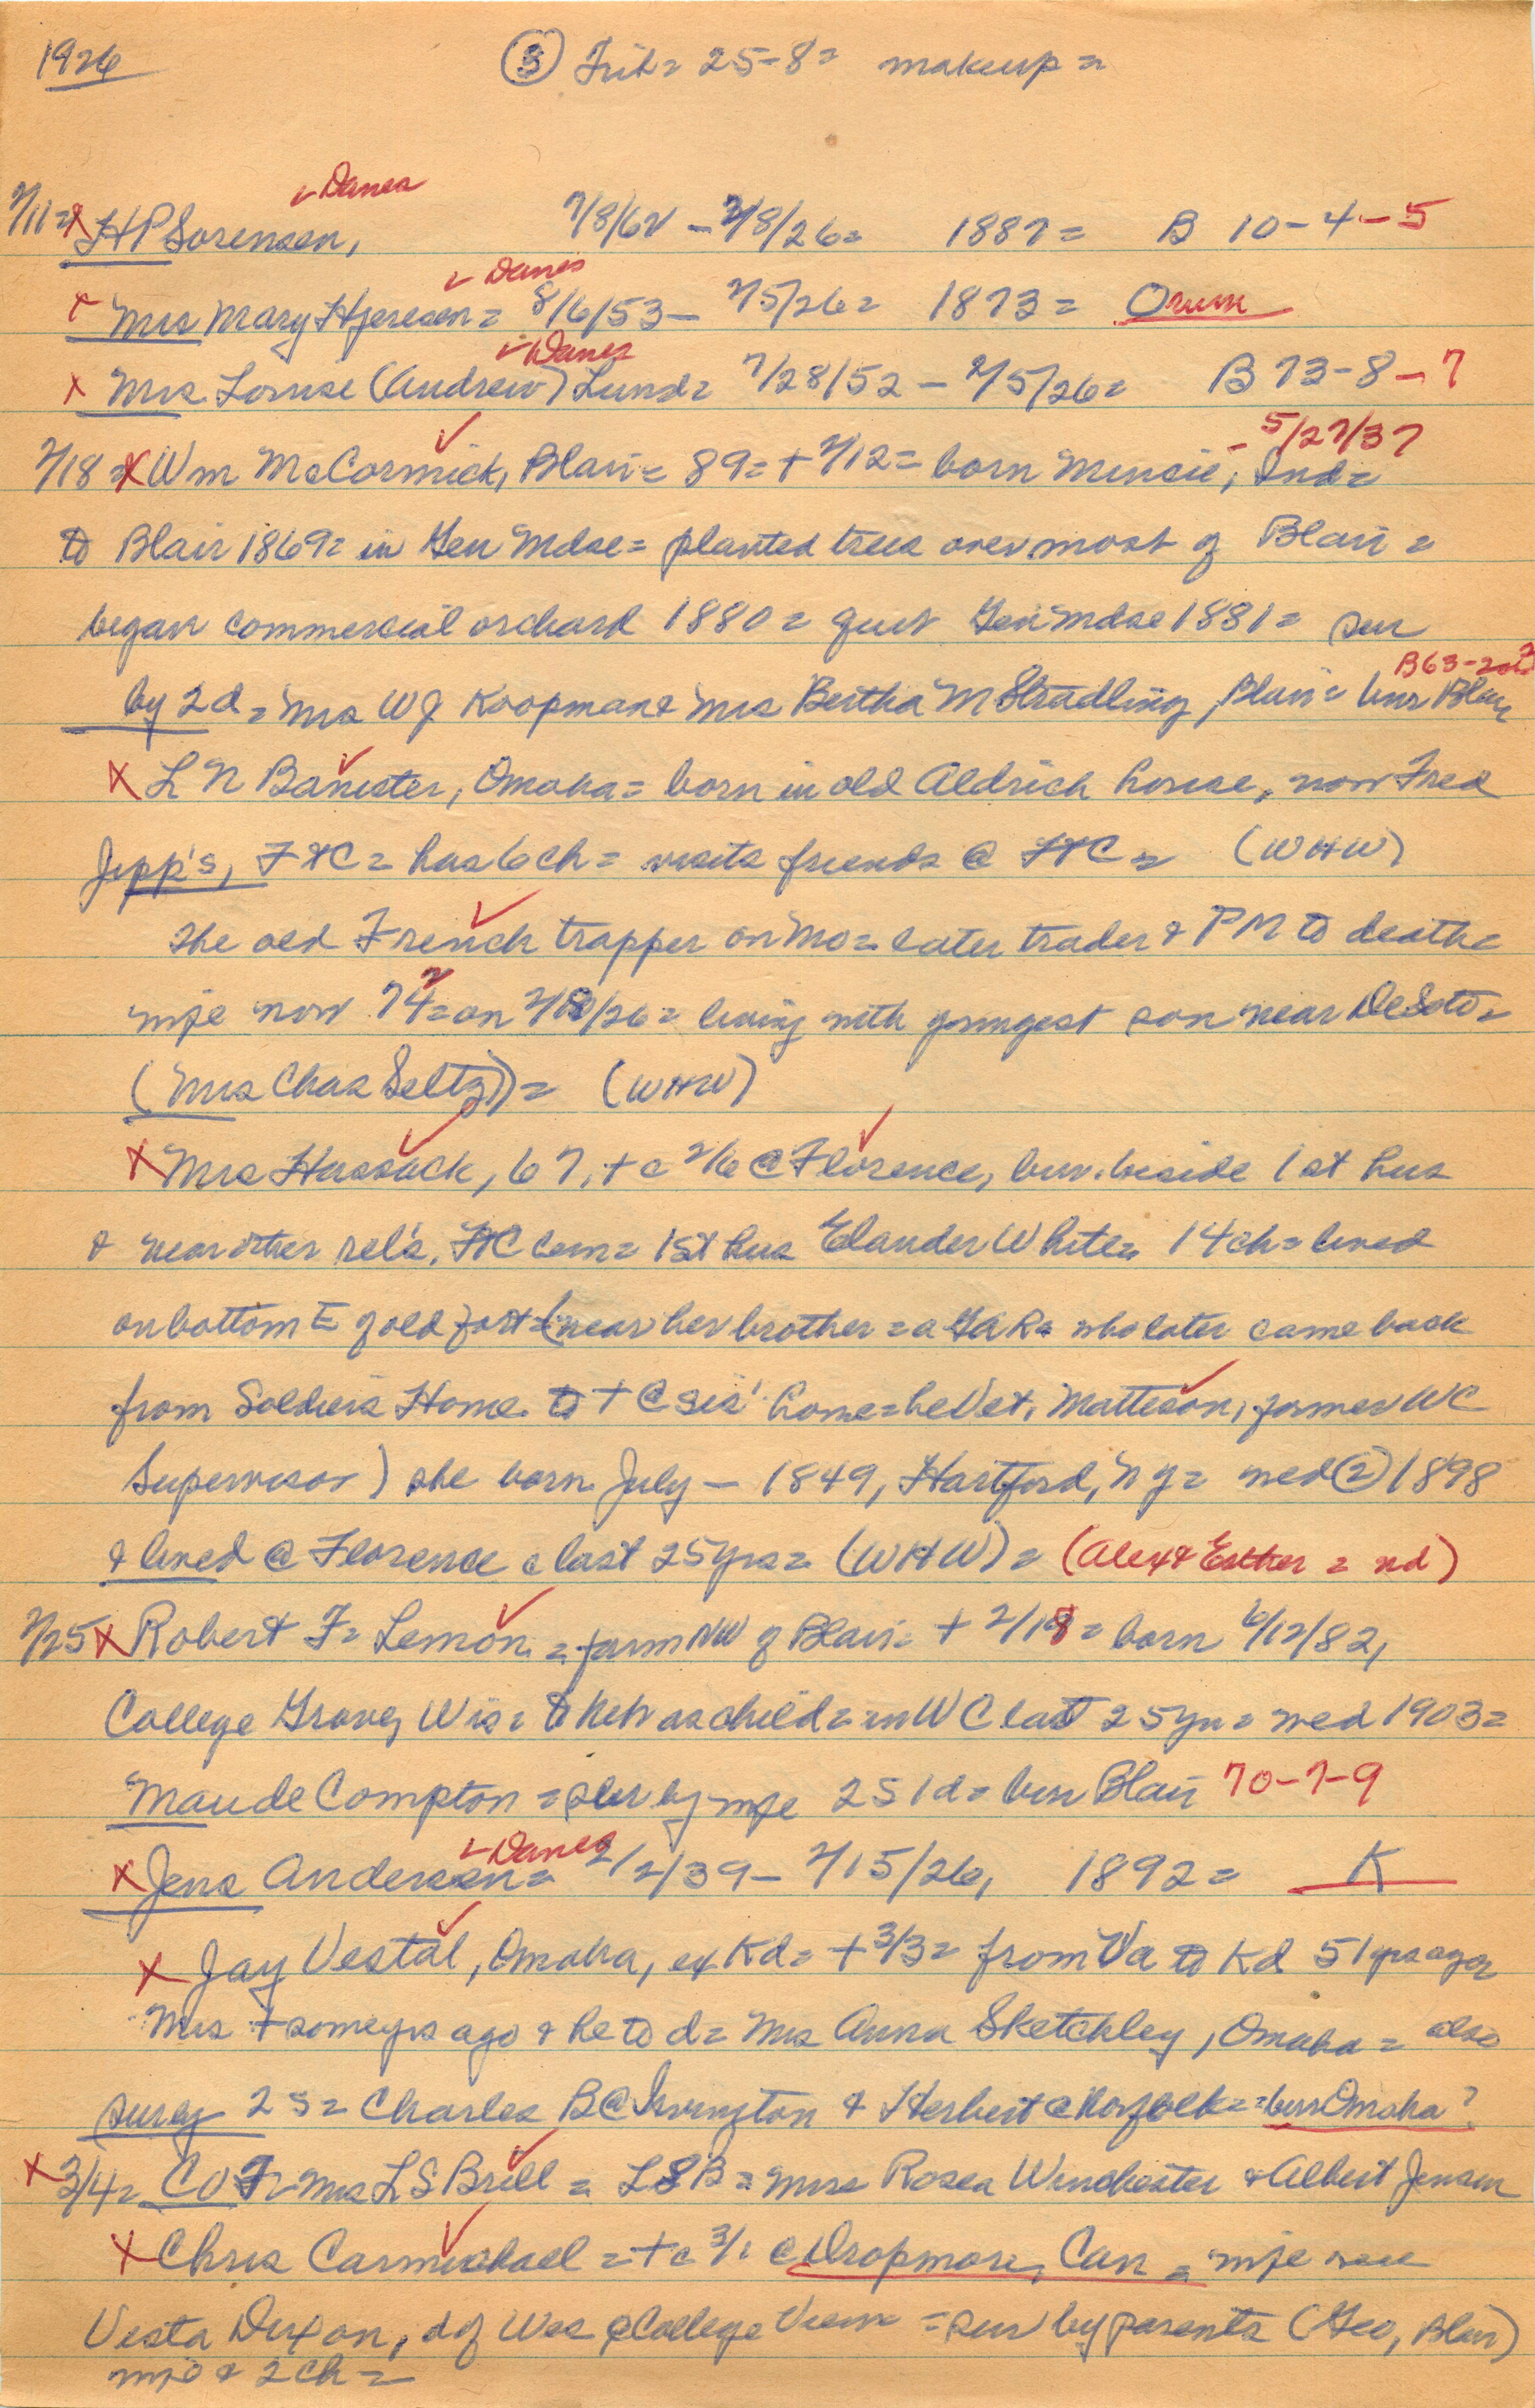 1926 ③ Trib= 25-8= makeup=
✓ Danes
2/11= x HP Sorensen, 7/8/62 - 2/8/26= 1887= B 10-4-5
✓ Danes
x Mrs Mary Hjeresen= 8/6/53- 2/5/26= 1873= Orum
✓ Danes
x Mrs Louise (Andrew) Lund= 7/28/52 - 2/5/26= B 73-8-7
- 5/27/37
2/18= x Wm McCormick, Blair= 89= + 2/12= born Muncie, Ind=
to Blair 1869= in Gen Mdse= planted trees over most of Blair=
began commercial orchard 1880= quit Gen Mdse 1881= sur
B63-
by 2d= Mrs WJ Koopman & Mrs Bertha M Stradling, Blair= bur Blair
x L N Banister, Omaha= born in old Aldrich house, now Fred
Jipp's, FtC= has 6 ch= visits friends @ FtC= (WHW)
The old French trapper on Mo= later trader & PM to death=
wife now 74= on 2/18/26= living with youngest son near DeSoto=
(Mrs Chas Seltz)= (WHW)
x Mrs Hussack, 67, + c 2/6 @ Florence, bur. beside 1st hus
& near other rel's, FtC cem= 1st hus Elander White= 14 ch= lived
on bottom E of old fort= (near her brother= a GAR= who later came back
from Soldiers Home to + @ sis' home= he Vet. Matteson, former WC
Supervisor) she born July - 1849, Hartford, NY= wed ② 1898
& lived @ Florence c last 25 yrs= (WHW)= (Alex & Esther = nd)
2/25 x Robert F= Lemon= farm NW of Blair= + 2/18= born 6/12/82,
College Grove, Wis= to Neb as child= in WC last 25 yrs= wed 1903=
Maude Compton= sur by wife 2s 1d= bur Blair 70-7-9
✓ Danes
x Jens Andersen= 2/2/39- 2/15/26, 1892= K
x Jay Vestal, Omaha, ex Kd= + 3/3= from Va to Kd 51 yrs ago
Mrs + some yrs ago & he to d= Mrs Anna Sketchley, Omaha= also
sur by 2s= Charles B @ Irvington & Herbert @ Norfolk= =bur Omaha?
x 3/4= COT= Mrs L S Brill= LSB= Mrs Rosea Winchester & Albert Jensen
x Chris Carmichael= + c 3/1 @ Dropmore, Can= wife was
Vesta Dixon, d of Wes @ College View= sur by parents (Geo, Blair)
wife & 2 ch=